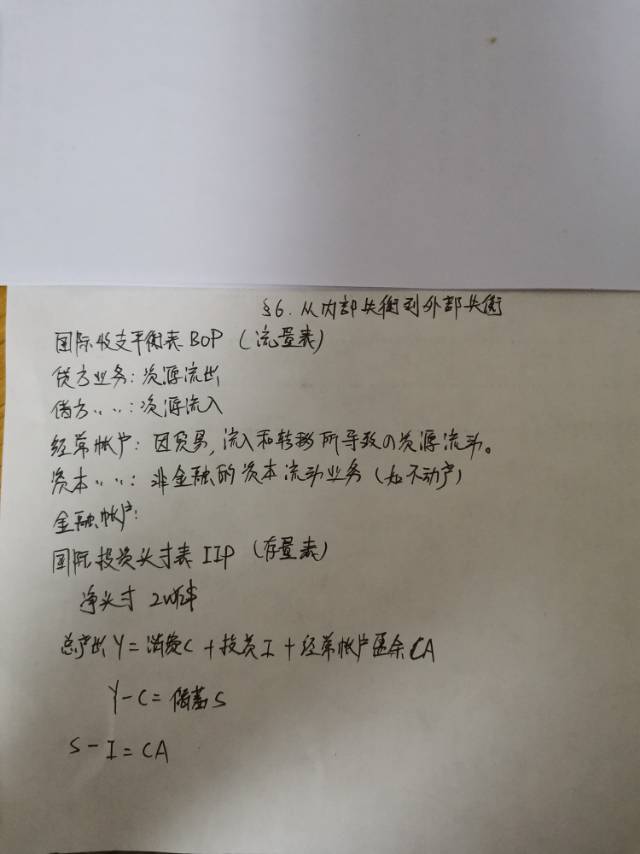 §6.从内部失衡到外部失衡
国际收支平衡表 BOP (流量表)
贷方业务:资源流出
借方〃〃:资源流入
经常帐户:因贸易,流入和转移所导致の资源流动。
资本〃〃:非金融的资本流动业务(如不动产)
金融帐户:
国际投资头寸表 IIP (存量表)
净头寸
总产出 Y=消费C+投资I+经常帐户盈余CA
Y-C=储蓄S
S-I=CA